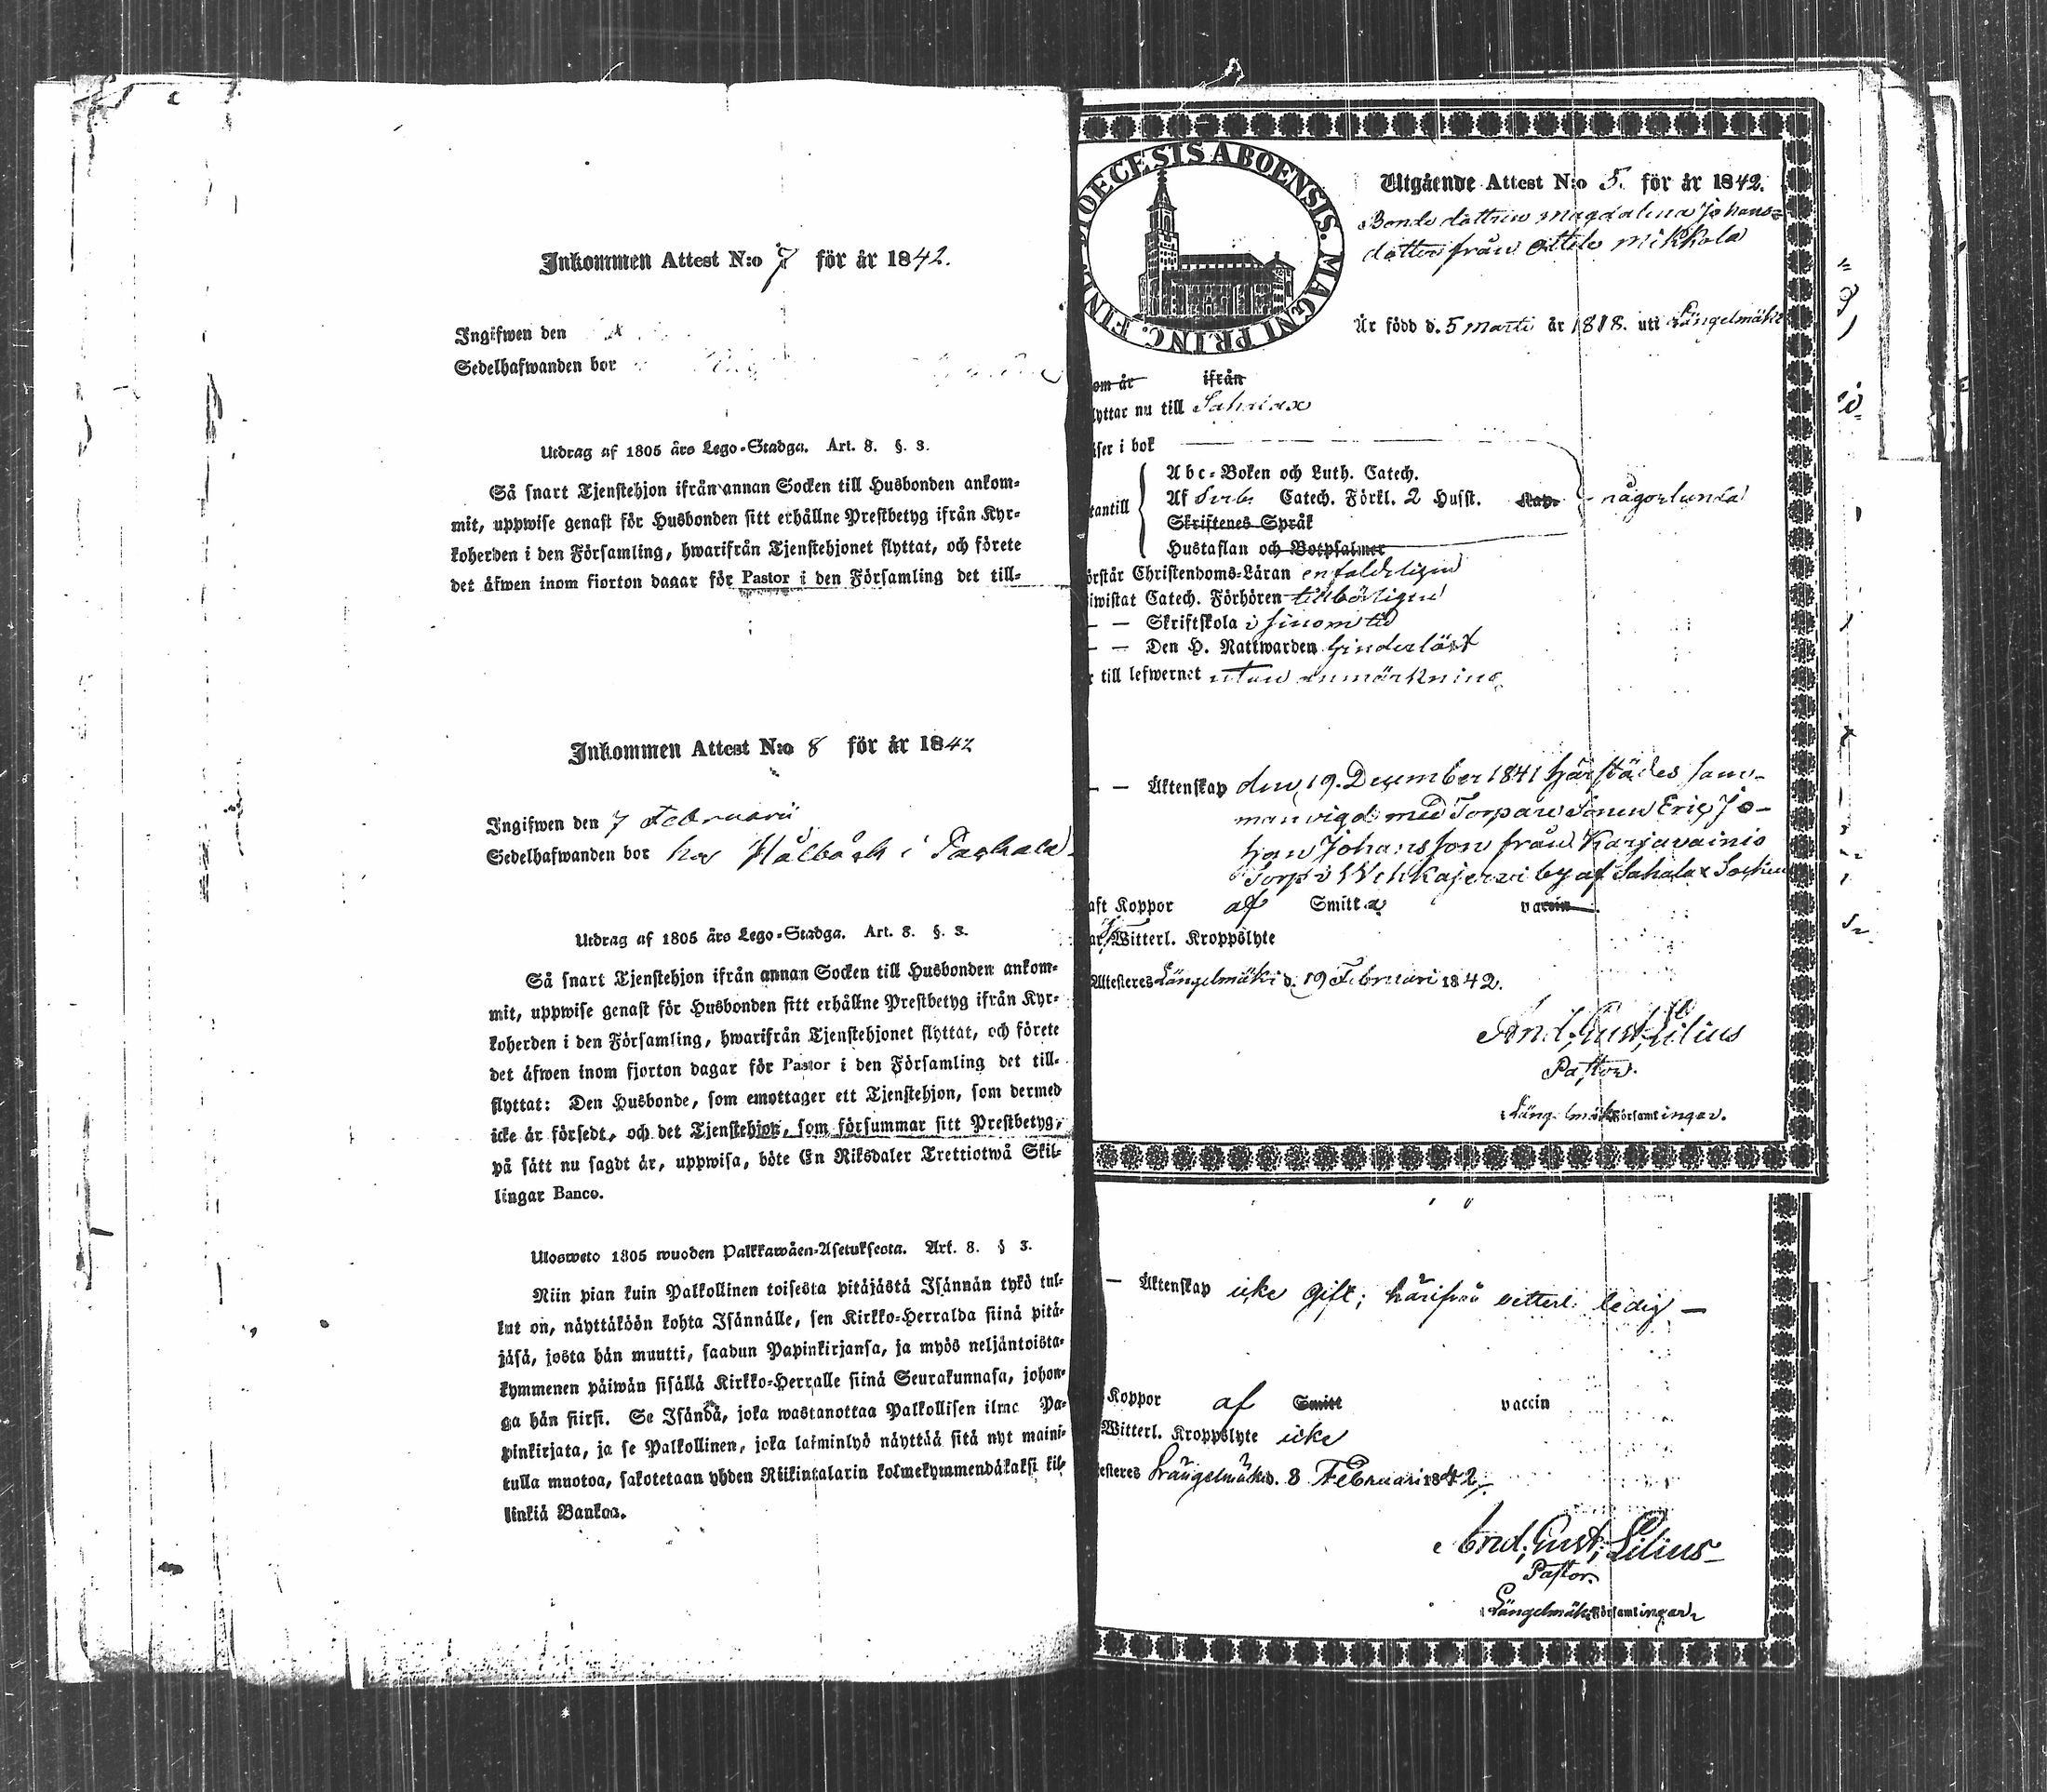 Inkommen Attest N:o 7 för år 1842.
Ingifwen den
Sedelhafwanden bor
Utdrag af 1805 års Lego-Stadga. Art. 8. §. 3.
Så snart Tjenstehjon ifrån annan Socken till Husbonden ankom-
mit, uppwise genast för Husbonden sitt erhållne Prestbetyg ifrån Kyr-
koherden i den Församling, hwarifrån Tjenstehjonet flyttat, och förete
det äfwen inom fjorton dagar för Pastor i den Församling det till-
Inkommen Attest N:o 8 för år 1842
Ingifwen den 7 Februarii
Sedelhafwanden bor hos i
Utdrag af 1805 års Lego-Stadga. Art. 8. §. 3.
Så snart Tjenstehjon ifrån annan Socken till Husbonden ankom-
mit, uppwise genast för Husbonden sitt erhållne Prestbetyg ifrån Kyr-
koherden i den Församling, hwarifrån Tjenstehjonet flyttat, och förete
det äfwen inom fjorton dagar för Pastor i den Församling det till-
flyttat: Den Husbonde, som emottager ett Tjenstehjon, som dermed
icke är försedt, och det Tjenstehjon, som försummar sitt Prestbetyg,
på sätt nu sagdt är, uppwisa, böte En Riksdaler Trettiotwå Skil-
lingar Banco.
Ulosweto 1805 wuoden Palkkawäen-Asetuksesta. Art. 8. § 3.
Niin pian kuin Palkollinen toisesta pitäjästä Isännän tykö tul-
lut on, näyttäköön kohta Isännälle, sen Kirkko-Herralda siinä pitä-
jäsä, josta hän muutti, saadun Papinkirjansa, ja myös neljäntoista-
kymmenen päiwän sisällä Kirkko-Herralle siinä Seurakunnasa, johon-
ga hän siirsi. Se Isändä, joka wastanottaa Palkollisen ilman Pa-
pinkirjata, ja se Palkollinen, joka laiminlyö näyttää sitä nyt maini-
tulla muotoa, sakotetaan yhden Riikintalarin kolmekymmendäkaksi kil-
linkiä Bankoa.
DIOECESIS ABOENSIS. MAGNI PRINC. FINL.
Utgående Attest N:o 5. för år 1842.
Bonde dottren Magdalena Johans-
dotter från Attila Mikkola
Är född d. 5 Martii år 1818. uti Längelmäki
om år ifrån
lyttar nu till Sahalax
äser i bok
tantill
Abc-Boken och Luth. Catech.
Af Catech. Förkl. 2 Husst. Kap. någorlunda
Skriftenes Språk
Hustaflan och Botpsalmer
örstår Christendoms-Läran enfaldeligen
iwistat Catech. Förhören tillbörligen
— — Skriftskola i sinom tid
— — Den H. Nattwarden hinderlöst
r till lefwernet utan anmärkning
— — Äktenskap den 19. December 1841 härstädes sam-
manvigd med Torpare Sonen Eric Jo-
han Johansson från Karjavainio
Torp i Wehkajerwi by af Sahalax Socken
aft Koppor af Smitta vaccin
ar Witterl. Kroppslyte
Attesteres Längelmäki d. 19 Februari 1842.
And. Gust. Lilius
Pastor.
i Längelmäki Församlingar.
— Äktenskap icke gift; härifrån vetterl. ledig —
Koppor af Smitt vaccin
Witterl. Kroppslyte icke
esteres Längelmäki d. 8 Februari 1842.
And. Gust. Lilius
Pastor.
i Längelmäki Församlingar